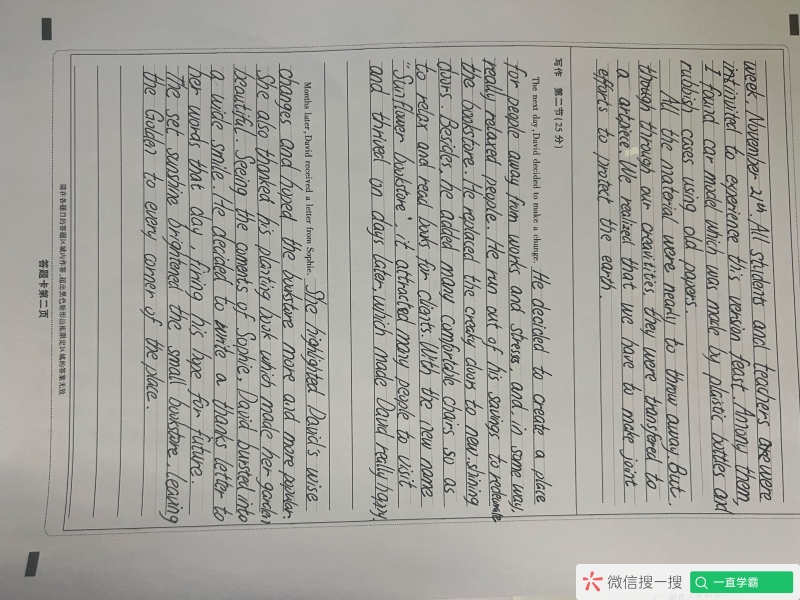 week, November 21th. All students and teachers are were
instinvited to experience this version feast. Among them,
I found car model which was made by plaistic bottles and
rubbish cases using old papers.
All the material were nearly to throw away. But
though through our creavitities, they were transfered to
a artpiece. We realized that we have to make joint
efforts to protect the earth.
写作 第二节(25分)
The next day, David decided to make a change. He decided to create a place
for people away from works and stress, and in some way,
really relaxed people. He run out of his savings to redecorate
the bookstore. He replaced the creaky doors to new, shining
doors. Besides, he added many comfortable chairs so as
to relax and read books for clients. With the new name
"Sunflower bookstore", it attracted many people to visit
and thrived on days later, which made David really happy.
Months later, David received a letter from Sophie. She highlighted David's wise
changes and hoped the bookstore more and more popular.
She also thanked his planting book which made her garden
beautiful. Seeing the coments of Sophie, David bursted into
a wide smile. He decided to write a thanks letter to
her words that day, firing his hope for future.
The set sunshine brightened the small bookstore, leaving
the Golden to every corner of the place.
请在各题目的答题区域内作答，超出黑色矩形边框限定区域的答案无效
答题卡第二页
微信搜一搜
一直学霸